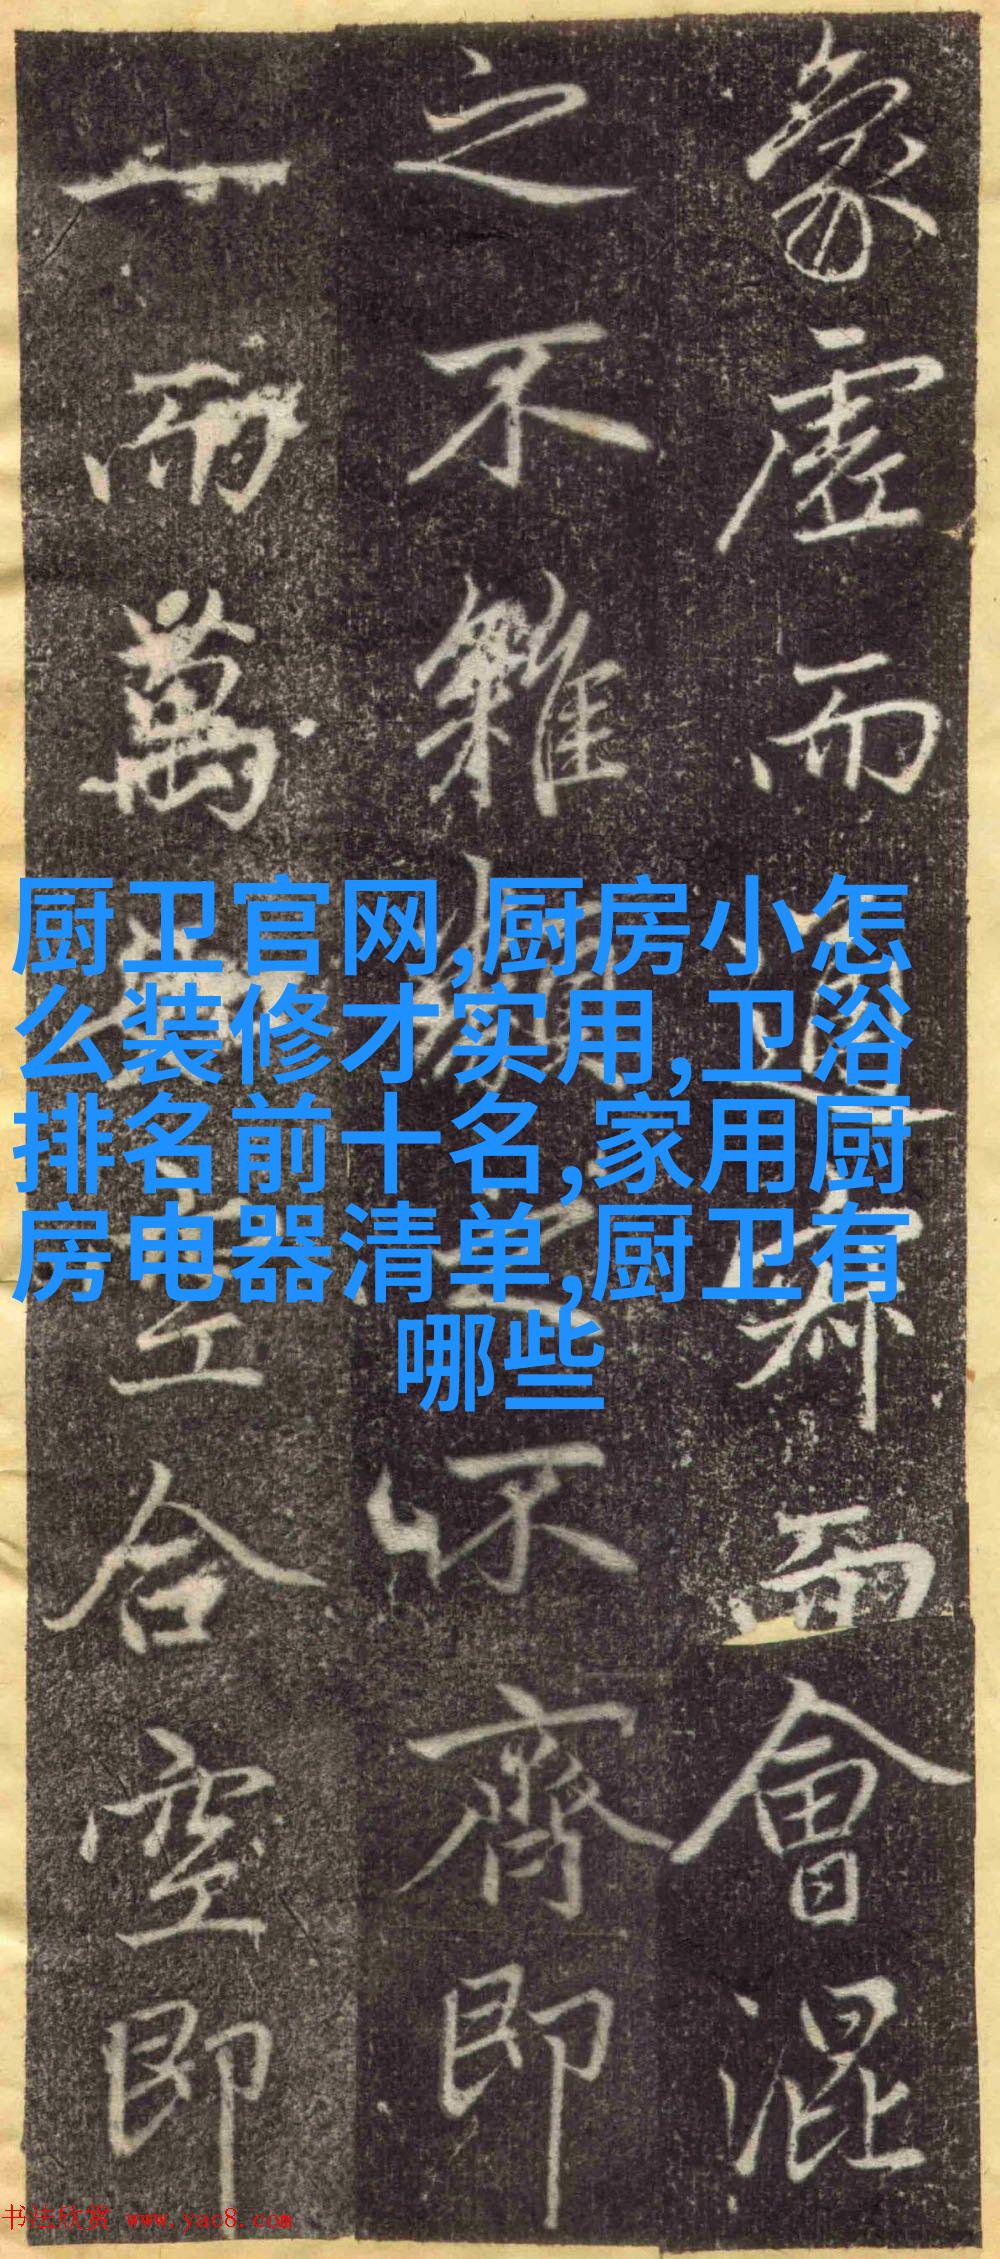 象虛而
而會混
之不雜
不齊即
一而萬
合空即
厨卫官网,厨房小怎
么装修才实用,卫浴
排名前十名,家用厨
房电器清单,厨卫有
哪些
书法欣赏 www.yac8.com